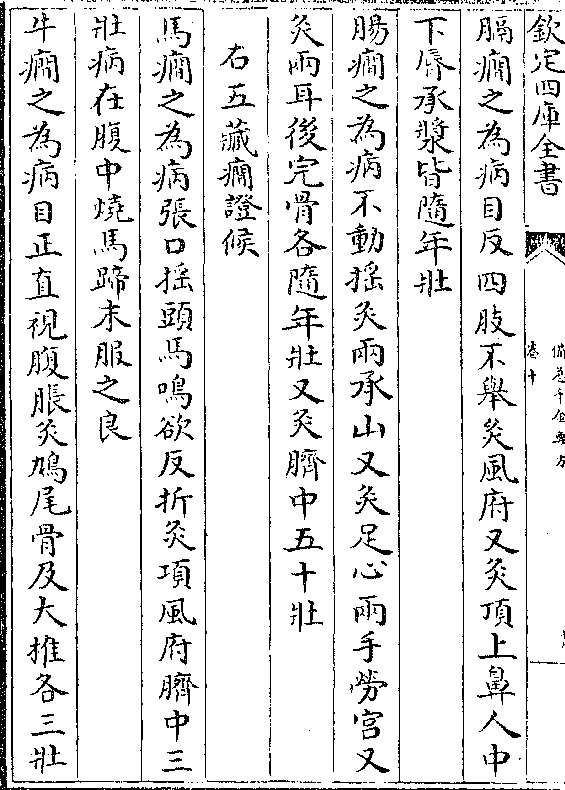 欽定四庫全書
備急千金要方
卷十
膈癇之為病目反四肢不舉灸風府又灸頂上鼻人中
下唇承漿皆隨年壯
腸癇之為病不動摇灸兩承山又灸足心兩手勞宮又
灸兩耳後完骨各隨年壯又灸臍中五十壯
右五藏癇證候
馬癇之為病張口摇頭馬鳴欲反折灸項風府臍中三
壯病在腹中燒馬蹄末服之良
牛癇之為病目正直視腹脹灸鳩尾骨及大推各三壯